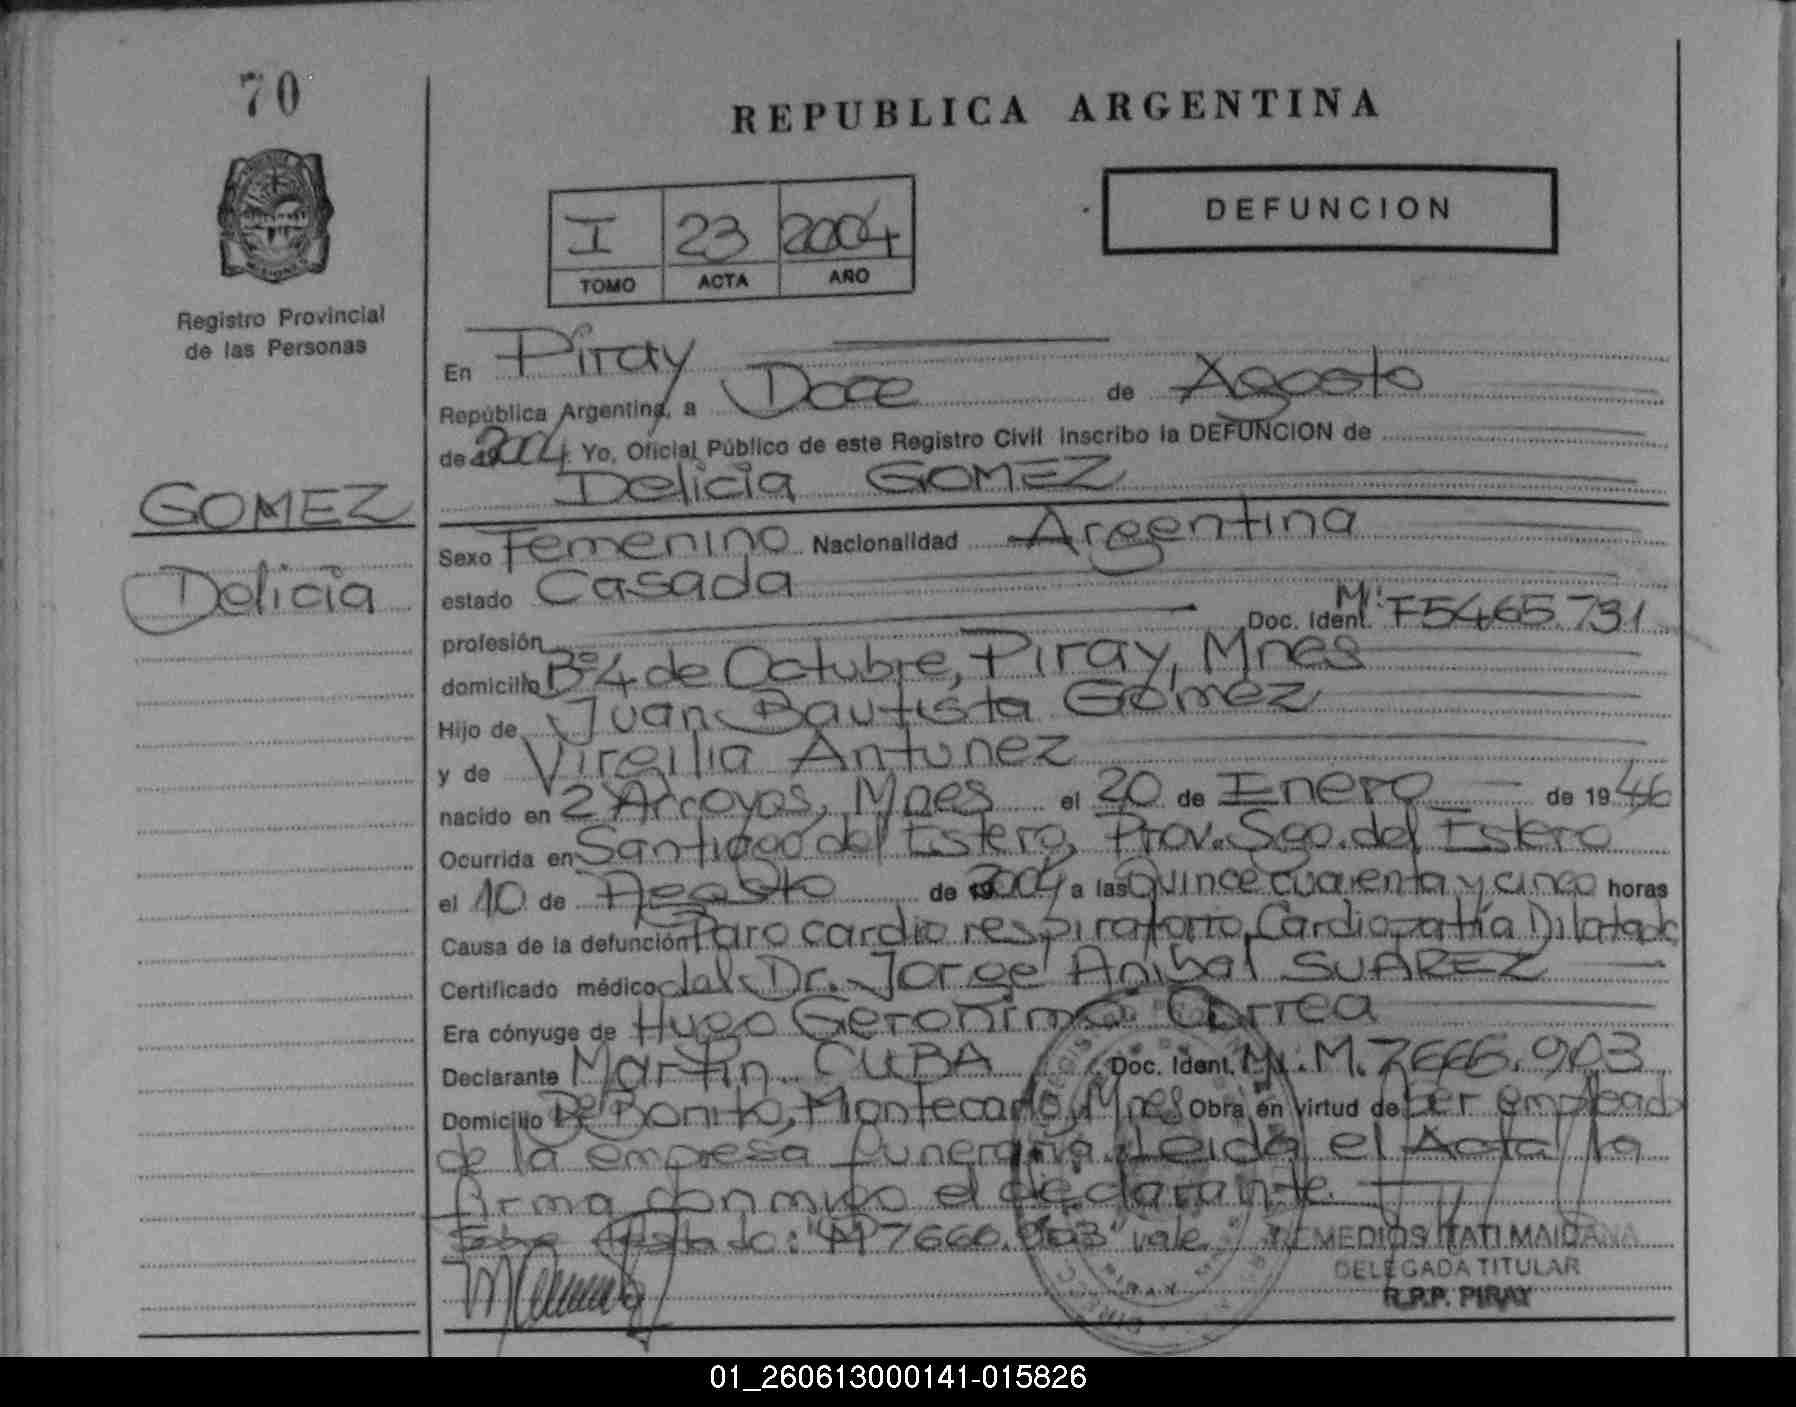 70
REPUBLICA ARGENTINA
DEFUNCION
I 23 2004
TOMO ACTA AÑO
Registro Provincial
de las Personas
GOMEZ
Delicia
En Piray
República Argentina, a Doce de Agosto
de 2004 Yo, Oficial Público de este Registro Civil inscribo la DEFUNCION de
Delicia GOMEZ
Sexo Femenino Nacionalidad Argentina
estado Casada
profesión Doc. Ident. M.I: F5465.731
domicilio Bº 4 de Octubre, Piray, Mnes
Hijo de Juan Bautista Gómez
y de Virgilia Antunez
nacido en 2 Arroyos, Mnes el 20 de Enero de 1946
Ocurrida en Santiago del Estero, Prov. Sgo. del Estero
el 10 de Agosto de 2004 a las Quince cuarenta y cinco horas
Causa de la defunción Paro cardio respiratorio, Cardiopatía Dilatada
Certificado médico del Dr. Jorge Anibal SUAREZ
Era cónyuge de Hugo Geronimo Correa
Declarante Martin CUBA Doc. Ident. M.I: M.7666.903
Domicilio Bonito, Montecarlo, Mnes Obra en virtud de Ser empleado
de la empresa funeraria. Leida el Acta la
firma conmigo el declarante.
Sobre Testado: "M 7666.903" vale
REMEDIOS ITATI MAIDANA
DELEGADA TITULAR
R.P.P. PIRAY
01_260613000141-015826